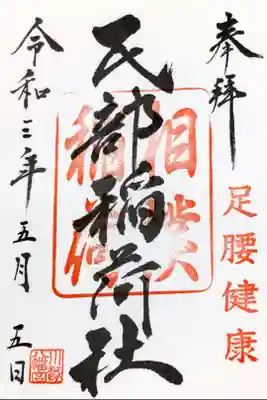 奉拝
足腰健康
民部稲荷社
令和三年五月五日